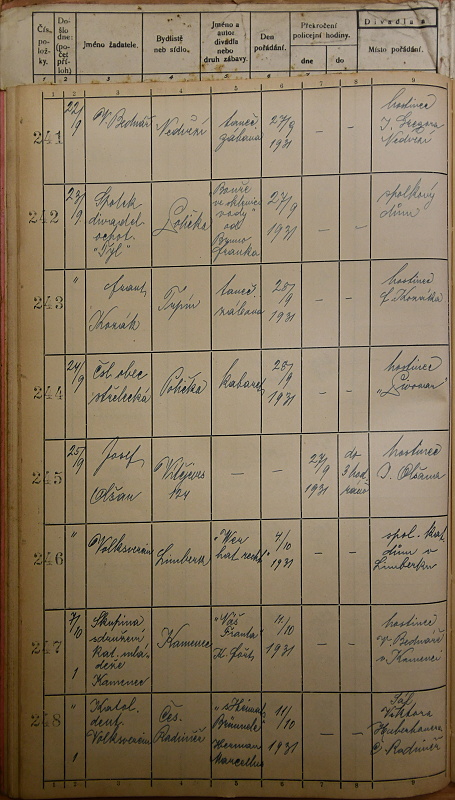 Čís. po- ložky.
Do- šlo dne: (po- čet pří- loh)
Jméno žadatele.
Bydliště neb sídlo.
Jméno a autor divadla nebo druh zábavy.
Den pořádání.
Překročení policejní hodiny.
dne
do
Divadla a
Místo pořádání.
1 2 3 4 5 6 7 8 9
241
22/9
V. Bednář
Nedvězí
taneč. zábava
27/9 1931
–
–
hostinec
J. Gregora
Nedvězí
242
23/9
Spolek
divadel.
ochot.
"Tyl"
Polička
Bouře
ve sklenici
vody"
od
Franka
27/9
1931
–
–
spolkový
dům
243
"
Frant.
Kozák
Trpín
taneč.
zábava
28/9
1931
–
–
hostinec
244
24/9
Čsl. obec
střelecká
Polička
kabaret
28/9
1931
–
–
hostinec
245
25/9
Josef
Olšan
124
–
–
27/9
1931
do
3 hod.
ráno
hostinec
J. Olšana
246
"
Volksverein
Limberk
"Wer
hat recht"
4/10
1931
–
–
spol. kat.
dům v
Limberku
247
7/10
1
Skupina
sdružení
kat. mlá-
deže
Kamenec
Kamenec
"Váš
Franta"
4/10
1931
–
–
hostinec
V. Bednáře
v Kamenci
248
"
1
Katol.
deut.
Volksverein
Čes.
Radiměř
Hermann
Marcellus
11/10
1931
–
–
Sál
Viktora
Huberhauera
Č. Radiměř
1 2 3 4 5 6 7 8 9